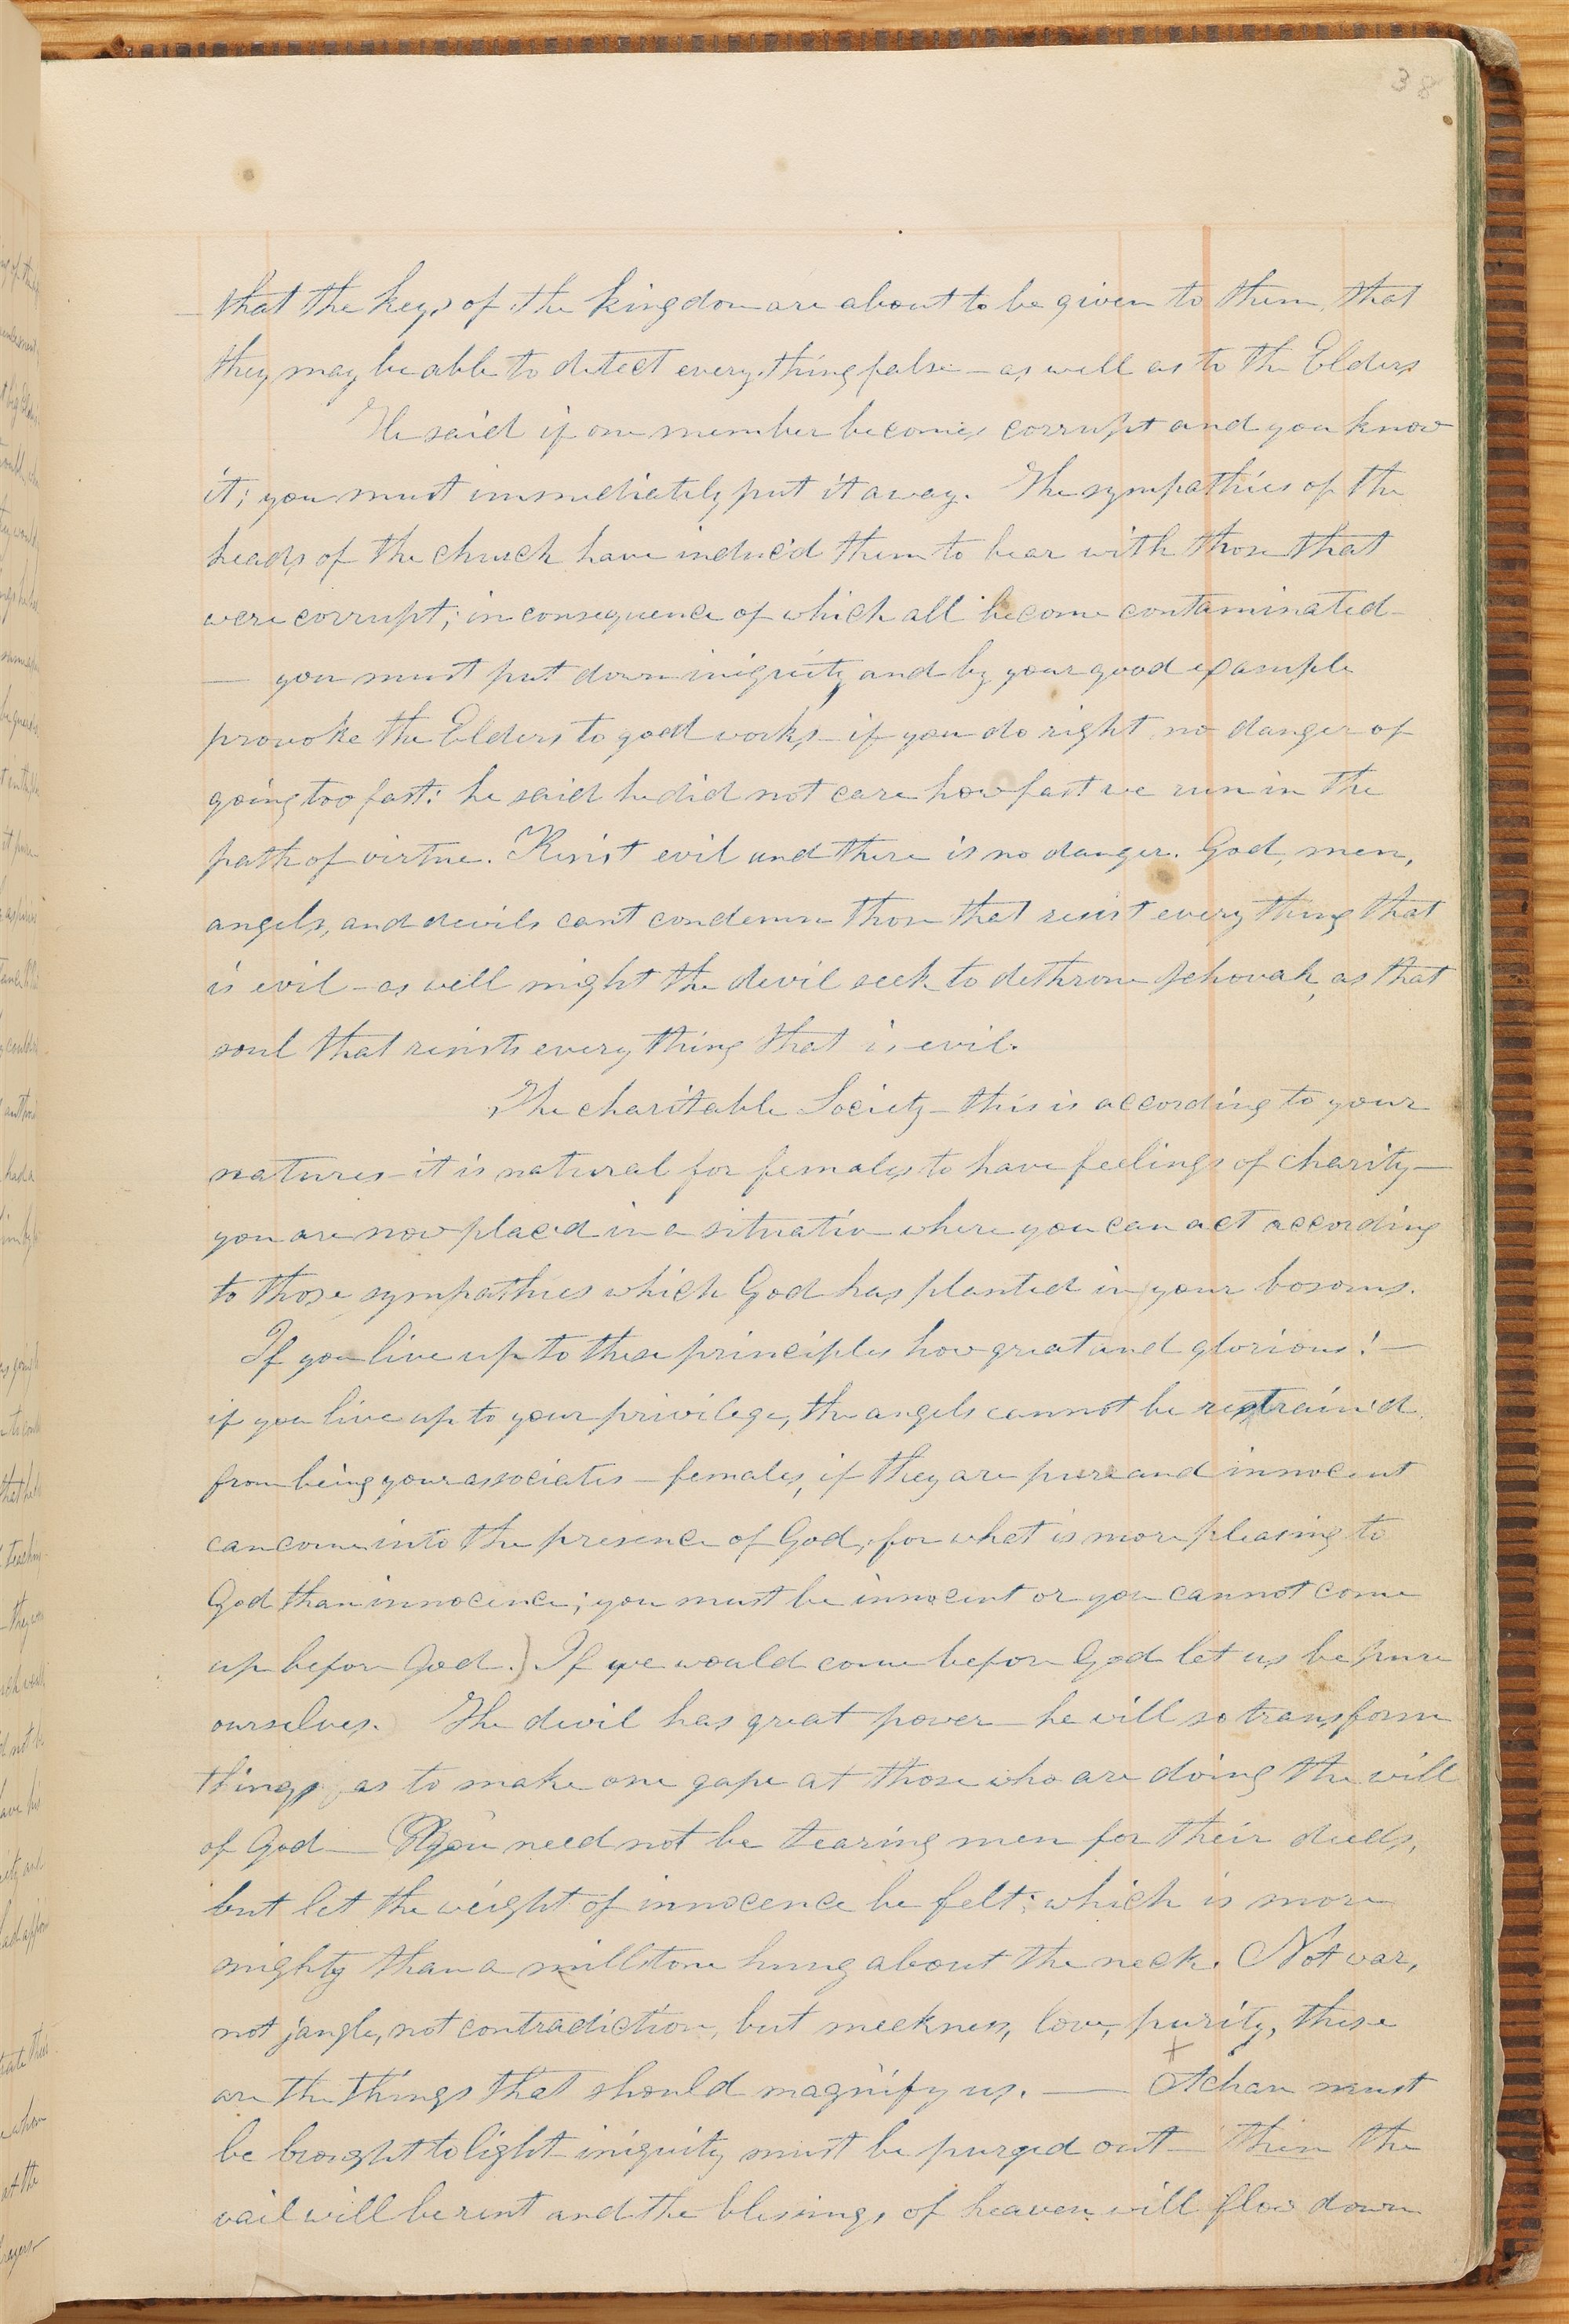 38
that the keys of the kingdom are about to be given to them, that
they may be able to detect every thing false — as well as to the Elders
He said if one member becomes corrupt and you know
it; you must immediately put it away. The sympathies of the
heads of the church have induc'd them to bear with those that
were corrupt; in consequence of which all become contaminated —
— you must put down iniquity and by your good example
provoke the Elders to good works — if you do right, no danger of
going too fast: he said he did not care how fast we run in the
path of virtue. Resist evil and there is no danger. God, men,
angels, and devils can't condemn those that resist every thing that
is evil — as well might the devil seek to dethrone Jehovah, as that
soul that resists every thing that is evil.
The charitable Society — this is according to your
natures — it is natural for females to have feelings of charity —
you are now plac'd in a situation where you can act according
to those sympathies which God has planted in your bosoms.
If you live up to these principles how great and glorious! —
if you live up to your privilege, the angels cannot be restrain'd
from being your associates — females, if they are pure and innocent
can come into the presence of God; for what is more pleasing to
God than innocence; you must be innocent or you cannot come
up before God.) If we would come before God let us be pure
ourselves. The devil has great power — he will so transform
things as to make one gape at those who are doing the will
of God — You need not be tearing men for their deeds,
but let the weight of innocence be felt; which is more
mighty than a millstone hung about the neck. Not war,
not jangle, not contradiction, but meekness, love, purity, these
are the things that should magnify us. — Achan must
be brought to light — iniquity must be purged out — then the
vail will be rent and the blessings of heaven will flow down